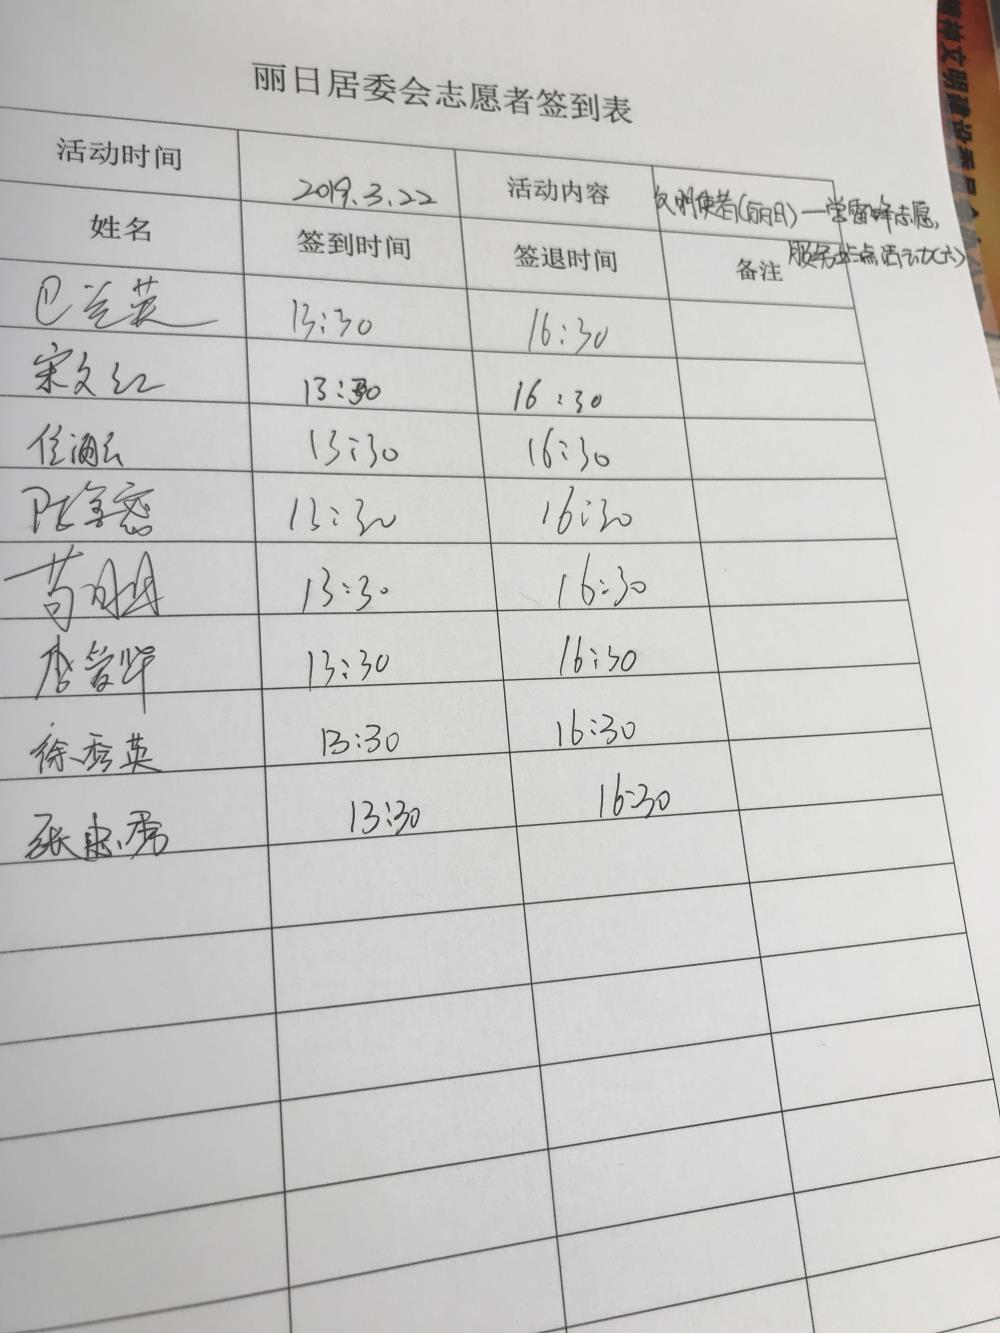 丽日居委会志愿者签到表
活动时间 2019.3.22 活动内容 文明使者(丽日)一学雷锋志愿
服务站点活动(六)
姓名 签到时间 签退时间 备注
巴兰英 13:30 16:30
宋文红 13:30 16:30
任 13:30 16:30
陈 13:30 16:30
13:30 16:30
唐爱华 13:30 16:30
徐秀英 13:30 16:30
张 13:30 16:30
精神文明建设委员会办公室